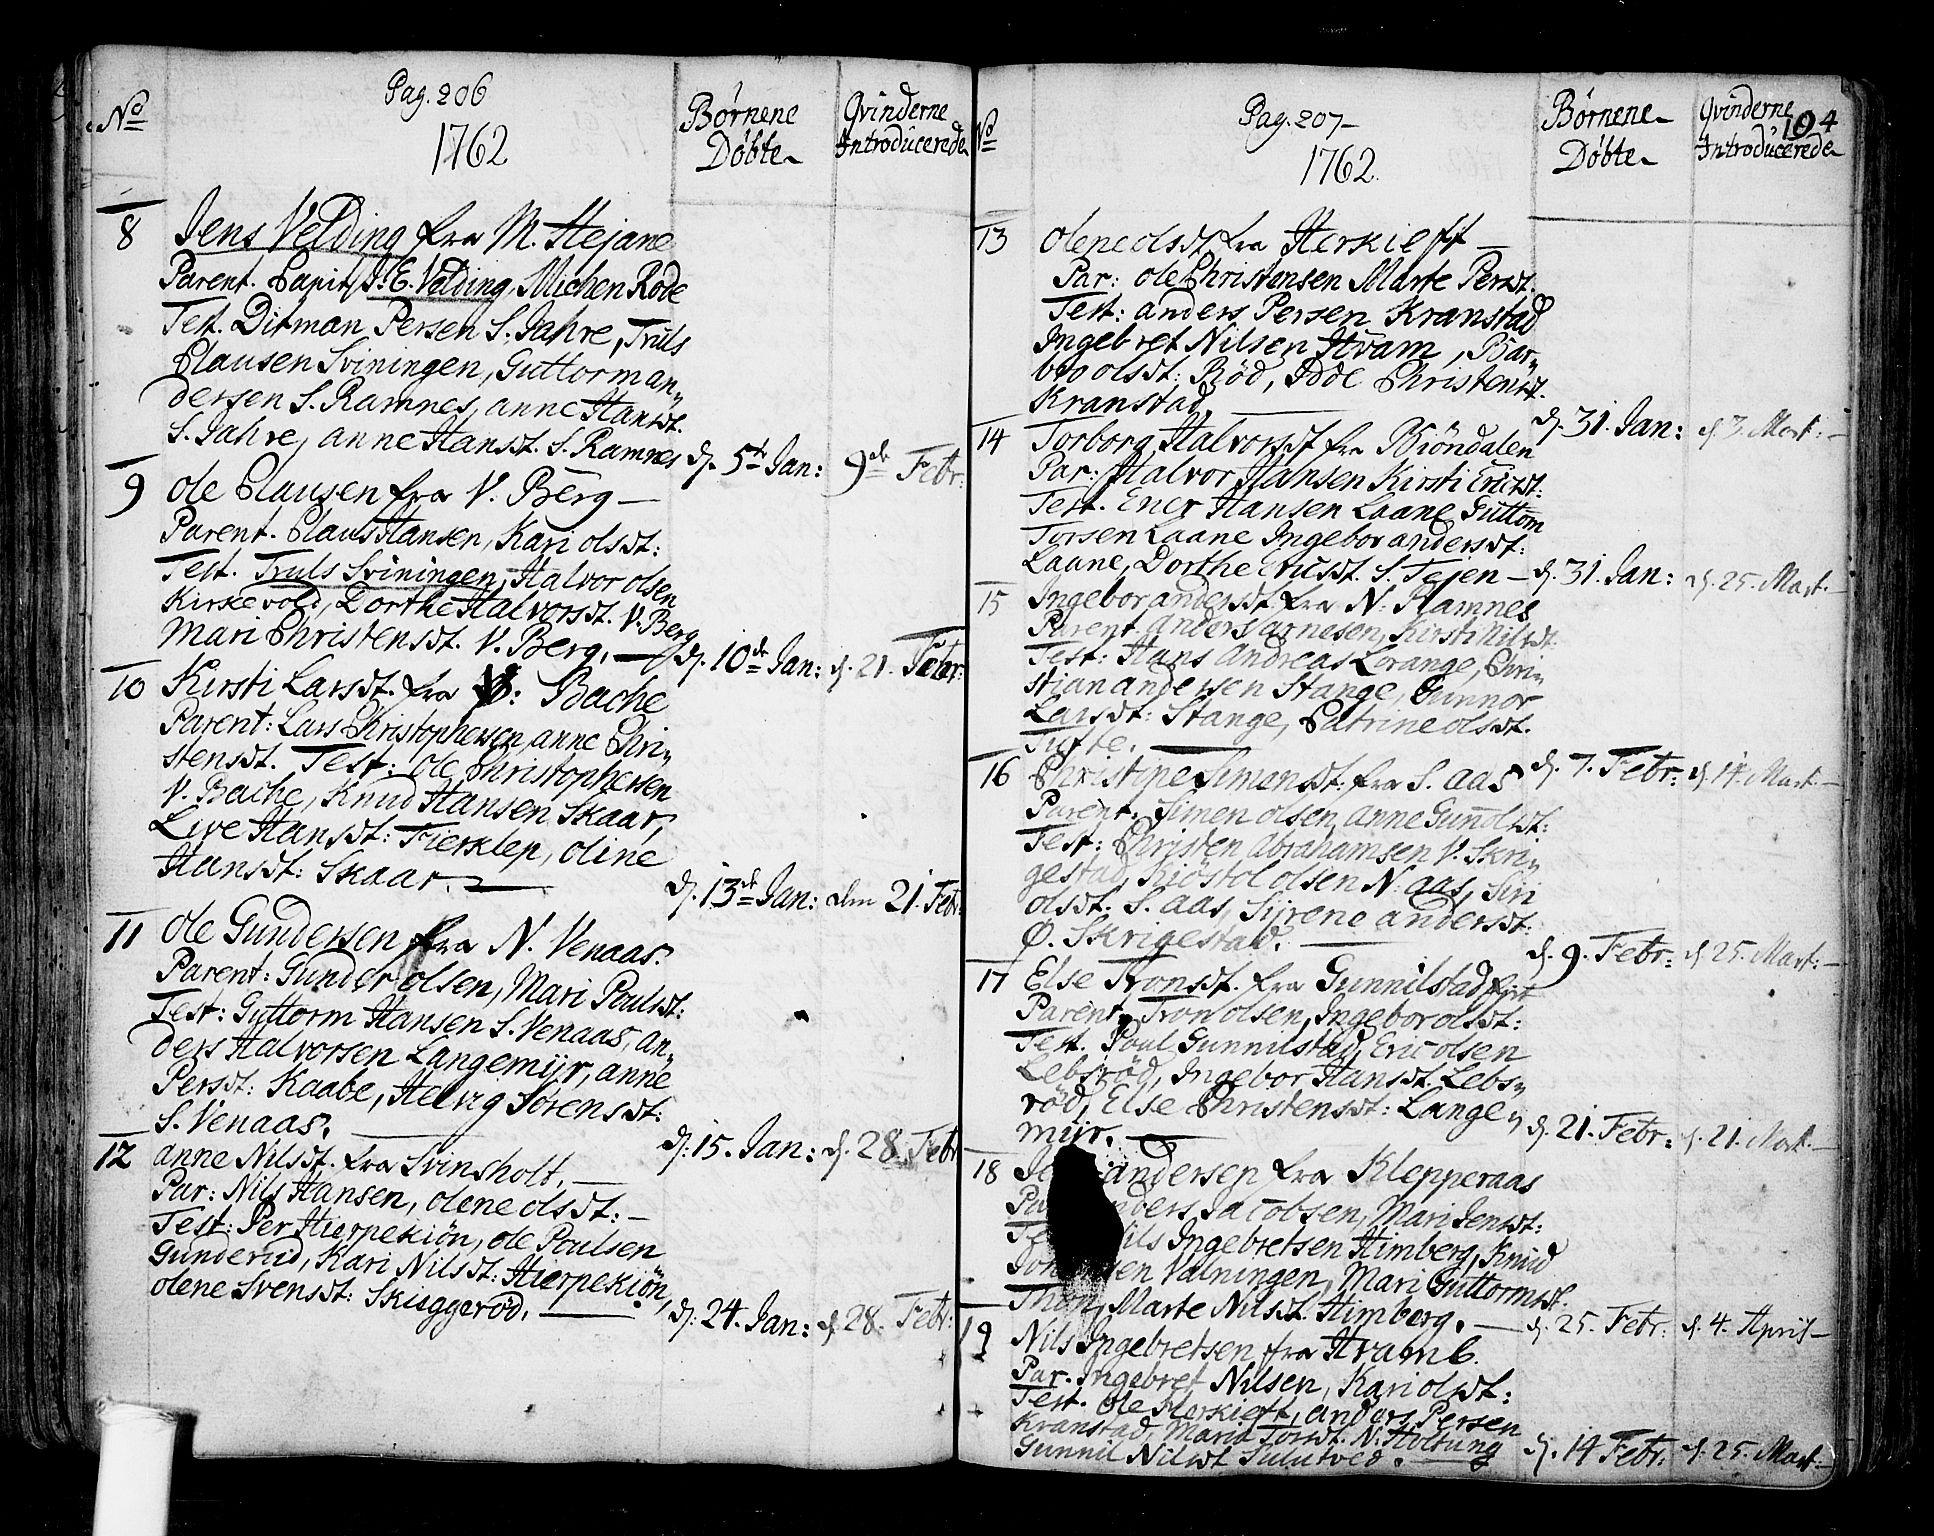 Pag. 206
No
1762
Børnene
Døbte
Qvinderne
Introducerede
8
Jens Velding fra M. Hejane
Parent. Capit. J. E. Velding, Michen Rode
Test. Ditman Persen S. Jahre, Truls
Clausen Sviningen, Guttorm an„
dersen S. Ramnes, anne Hansdt.
S. Jahre, anne Hansdt. S. Ramnes d. 5t Jan: 9de Febr:
9
Ole Clausen fra V. Berg —
Parent. Claus Hansen, Kari olsdt:
Test. Truls Sviningen, Halvor olsen
Kirkevold, Dorthe Halvorsdt. V. Berg
Mari Christensdt. V. Berg. — d. 10de Jan: d. 21. Febr:
10
Kirsti Larsdt. fra V: Bache
Parent: Lars Christophersen, anne Chri„
stensdt. Test: ole Christophersen
V. Bache, Knud Hansen Skaar,
Live Hansdt: Fierklep, oline
Hansdt: Skaar. — d. 13de Jan: den 21. Febr:
11
Ole Gundersen fra N. Venaas.
Parent: Gunder olsen, Mari Poulsdt:
Test: Guttorm Hansen S. Venaas, an„
ders Halvorsen Langemyr, anne
Persdt: Kaabe, Helvig Sørensdt:
S. Venaas. — d. 15. Jan: d. 28. Febr
12
anne Nilsdt. fra Svinsholt. —
Par: Nils Hansen, olene olsdt: —
Test: Per Hierpekiön, ole Poulsen
Gunderud, Kari Nilsdt: Hierpekiön,
olene Svensdt: Skuggeröd. — d. 24. Jan: d. 28. Febr:
No
Pag. 207 —
1762.
Børnene
Døbte
Qvinderne
Introducerede
104
13
Olene olsdt. fra Herkieff —
Par: ole Christensen Marte Persdt.
Test: anders Persen Kranstad
Ingebret Nilsen Hvam, Bar„
bro olsdt: Röd, Idde Christensdt.
Kranstad. — d. 31. Jan: d. 3. Mart: —
14
Torborg Halvorsdt fra Biöndalen
Par: Halvor Hansen Kirsti Ericsdt:
Test. Ener Hansen Laane Guttom
Torsen Laane Ingebor andersdt:
Laane, Dorthe Ericsdt. S. Tejen — d. 31. Jan: d. 25. Mart. —
15
Ingebor andersdt. fra N: Ramnes
Parent. anders arnesen, Kirsti Nilsdt:
Test: Hans Andreas Lorange, Chri„
stian andersen Stange, Gunnor
Larsdt: Stange, Catrine olsdt.
Tufte. — d. 7. Febr: d. 14. Mart: —
16
Christine Simensdt: fra S. aas
Parent. Simen olsen, anne Gunolsdt:
Test: Christen Abrahamsen V. Skri„
gestad, Kiöstol olsen N. aas, Siri
olsdt: S. aas, Syrene andersdt:
Ø. Skrigestad. — d. 9. Febr: d. 25. Mart: —
17
Else Tronsdt. fra Gunnilstad
Parent. Tron olsen, Ingebor olsdt:
Test. Poul Gunnilstad, Eric olsen
Lebsröd, Ingebor Hansdt. Lebs„
röd, Else Christensdt: Lange„
myr. — d. 21. Febr: d. 21. Mart. —
18
andersen fra Klepperaas
Jacobsen, Mari Jensdt:
Ingebretsen Himberg, Knud
Valningen, Mari Guttormsdt.
Thon, Marte Nilsdt. Himberg. — d. 25. Febr: d. 4. April —
19
Nils Ingebretsen fra Hvam
Par. Ingebret Nilsen, Kari olsdt:
Test. Ole Herkieft, anders Persen
Kranstad, Maria Torsdt. N. Holtung
Gunnil Nilsdt Sulutved. — d. 14 Febr: d. 25. Mart: —